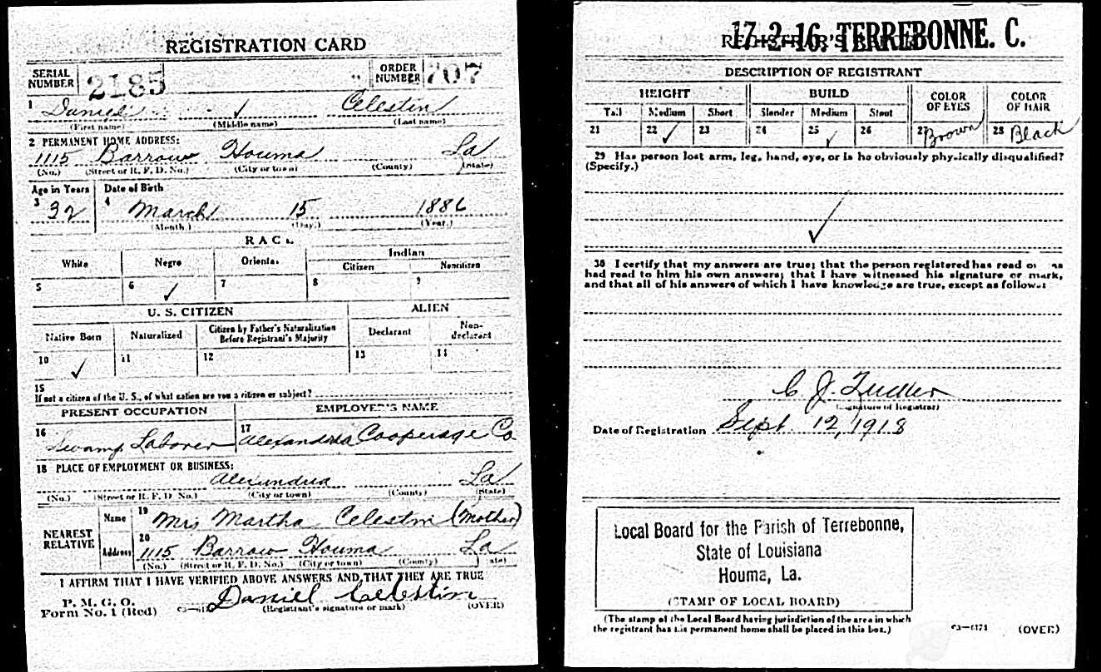 REGISTRATION CARD
SERIAL NUMBER 2185 ORDER NUMBER 707
1 Daniel Celestin
(First name) (Middle name) (Last name)
2 PERMANENT HOME ADDRESS:
1115 Barrow Houma La
(No.) (Street or R. F. D. No.) (City or town) (County) (State)
Age in Years Date of Birth
3 32 4 March 15 1886
(Month.) (Day.) (Year.)
RACE
White Negro Oriental Indian
Citizen Noncitizen
5 6 ✓ 7 8 9
U. S. CITIZEN ALIEN
Native Born Naturalized Citizen by Father's Naturalization Before Registrant's Majority Declarant Non-declarant
10 ✓ 11 12 13 14
15
If not a citizen of the U. S., of what nation are you a citizen or subject?
PRESENT OCCUPATION EMPLOYER'S NAME
16 Swamp Laborer 17 Alexandria Cooperage Co
18 PLACE OF EMPLOYMENT OR BUSINESS:
Alexandria La
(No.) (Street or R. F. D. No.) (City or town) (County) (State)
NEAREST RELATIVE
Name 19 Mrs Martha Celestin (Mother)
Address 20 1115 Barrow Houma La
(No.) (Street or R. F. D. No.) (City or town) (County) (State)
I AFFIRM THAT I HAVE VERIFIED ABOVE ANSWERS AND THAT THEY ARE TRUE
P. M. G. O.
Form No. 1 (Red) Daniel Celestin
(Registrant's signature or mark) (OVER)
17-2-16 TERREBONNE. C.
REGISTRAR'S
DESCRIPTION OF REGISTRANT
HEIGHT BUILD COLOR OF EYES COLOR OF HAIR
Tall Medium Short Slender Medium Stout
21 22 ✓ 23 24 25 ✓ 26 27 Brown 28 Black
29 Has person lost arm, leg, hand, eye, or is he obviously physically disqualified?
(Specify.)
✓
30 I certify that my answers are true; that the person registered has read or has
had read to him his own answers; that I have witnessed his signature or mark,
and that all of his answers of which I have knowledge are true, except as follows:
C J. Tucker
(Signature of Registrar)
Date of Registration Sept. 12, 1918
Local Board for the Parish of Terrebonne,
State of Louisiana
Houma, La.
(STAMP OF LOCAL BOARD)
(The stamp of the Local Board having jurisdiction of the area in which
the registrant has his permanent home shall be placed in this box.)
03—6171 (OVER)